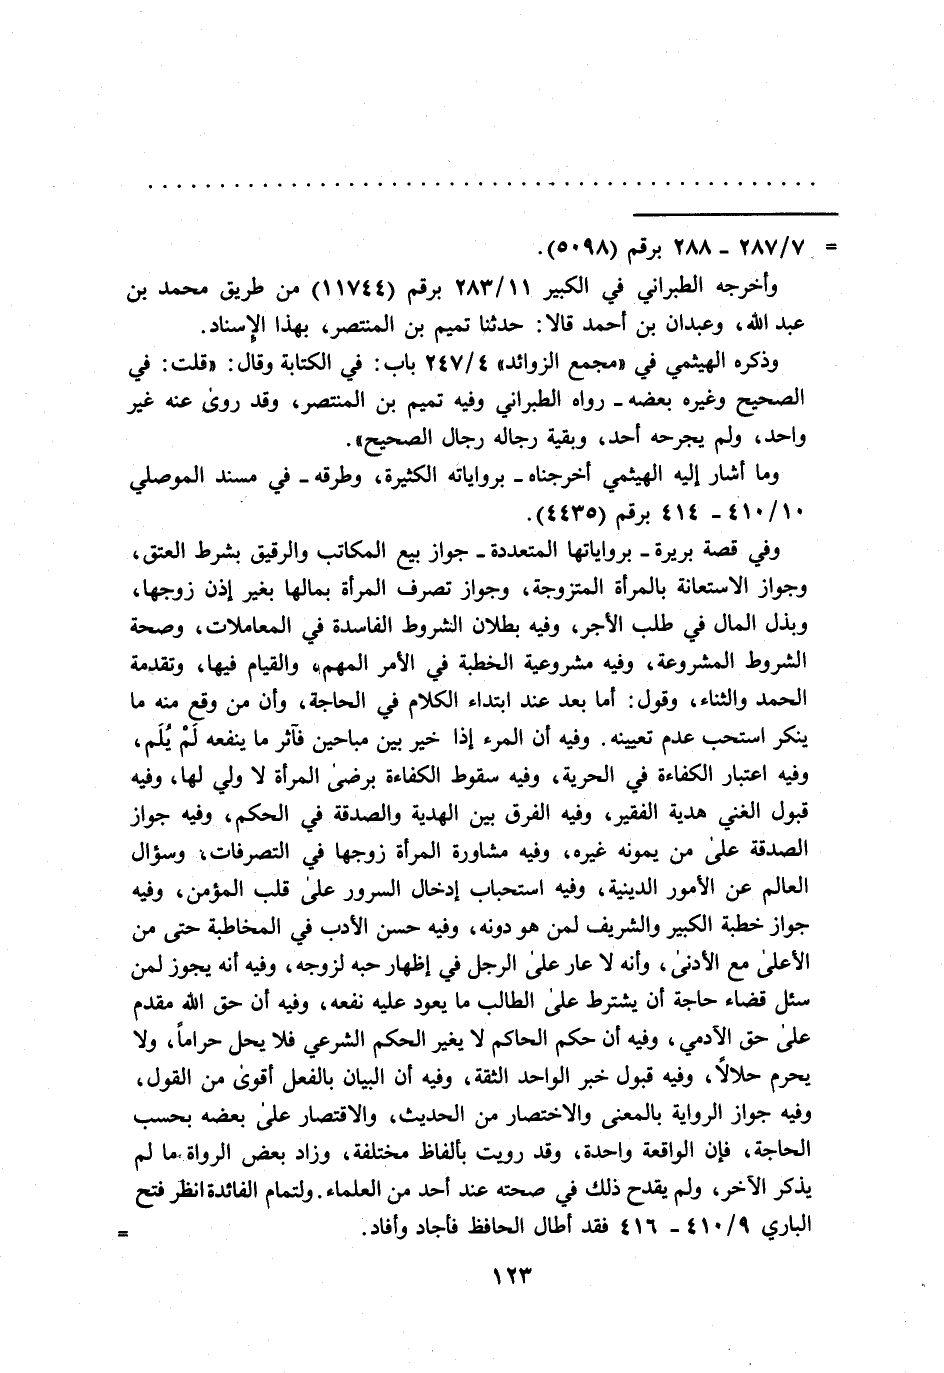 = ٢٨٧/٧ ـ ٢٨٨ برقم (٥٠٩٨).
وأخرجه الطبراني في الكبير ٢٨٣/١١ برقم (١١٧٤٤) من طريق محمد بن
عبد الله، وعبدان بن أحمد قالا: حدثنا تميم بن المنتصر، بهذا الإسناد.
وذكره الهيثمي في «مجمع الزوائد» ٢٤٧/٤ باب: في الكتابة وقال: «قلت: في
الصحيح وغيره بعضه ـ رواه الطبراني وفيه تميم بن المنتصر، وقد روىٰ عنه غير
واحد، ولم يجرحه أحد، وبقية رجاله رجال الصحيح».
وما أشار إليه الهيثمي أخرجناه ـ برواياته الكثيرة، وطرقه ـ في مسند الموصلي
٤١٠/١٠ ـ ٤١٤ برقم (٤٤٣٥).
وفي قصة بريرة ـ برواياتها المتعددة ـ جواز بيع المكاتب والرقيق بشرط العتق،
وجواز الاستعانة بالمرأة المتزوجة، وجواز تصرف المرأة بمالها بغير إذن زوجها،
وبذل المال في طلب الأجر، وفيه بطلان الشروط الفاسدة في المعاملات، وصحة
الشروط المشروعة، وفيه مشروعية الخطبة في الأمر المهم، والقيام فيها، وتقدمة
الحمد والثناء، وقول: أما بعد عند ابتداء الكلام في الحاجة، وأن من وقع منه ما
ينكر استحب عدم تعيينه. وفيه أن المرء إذا خير بين مباحين فآثر ما ينفعه لَمْ يُلَم،
وفيه اعتبار الكفاءة في الحرية، وفيه سقوط الكفاءة برضىٰ المرأة لا ولي لها، وفيه
قبول الغني هدية الفقير، وفيه الفرق بين الهدية والصدقة في الحكم، وفيه جواز
الصدقة علىٰ من يمونه غيره، وفيه مشاورة المرأة زوجها في التصرفات، وسؤال
العالم عن الأمور الدينية، وفيه استحباب إدخال السرور علىٰ قلب المؤمن، وفيه
جواز خطبة الكبير والشريف لمن هو دونه، وفيه حسن الأدب في المخاطبة حتى من
الأعلىٰ مع الأدنىٰ، وأنه لا عار علىٰ الرجل في إظهار حبه لزوجه، وفيه أنه يجوز لمن
سئل قضاء حاجة أن يشترط علىٰ الطالب ما يعود عليه نفعه، وفيه أن حق الله مقدم
علىٰ حق الآدمي، وفيه أن حكم الحاكم لا يغير الحكم الشرعي فلا يحل حراماً، ولا
يحرم حلالاً، وفيه قبول خبر الواحد الثقة، وفيه أن البيان بالفعل أقوىٰ من القول،
وفيه جواز الرواية بالمعنى والاختصار من الحديث، والاقتصار علىٰ بعضه بحسب
الحاجة، فإن الواقعة واحدة، وقد رويت بألفاظ مختلفة، وزاد بعض الرواة ما لم
يذكر الآخر، ولم يقدح ذلك في صحته عند أحد من العلماء. ولتمام الفائدة انظر فتح
الباري ٤١٠/٩ ـ ٤١٦ فقد أطال الحافظ فأجاد وأفاد. =
١٢٣